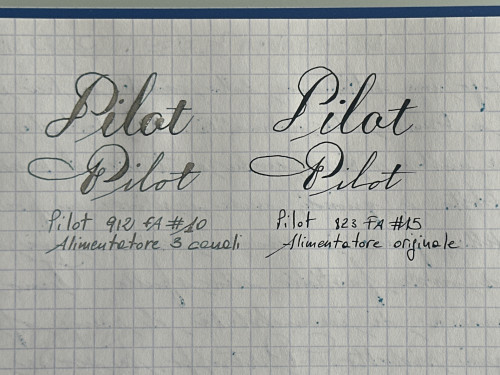 Pilot
Pilot
Pilot 912 FA #10
Alimentatore 3 canali
Pilot
Pilot
Pilot 823 FA #15
Alimentatore originale